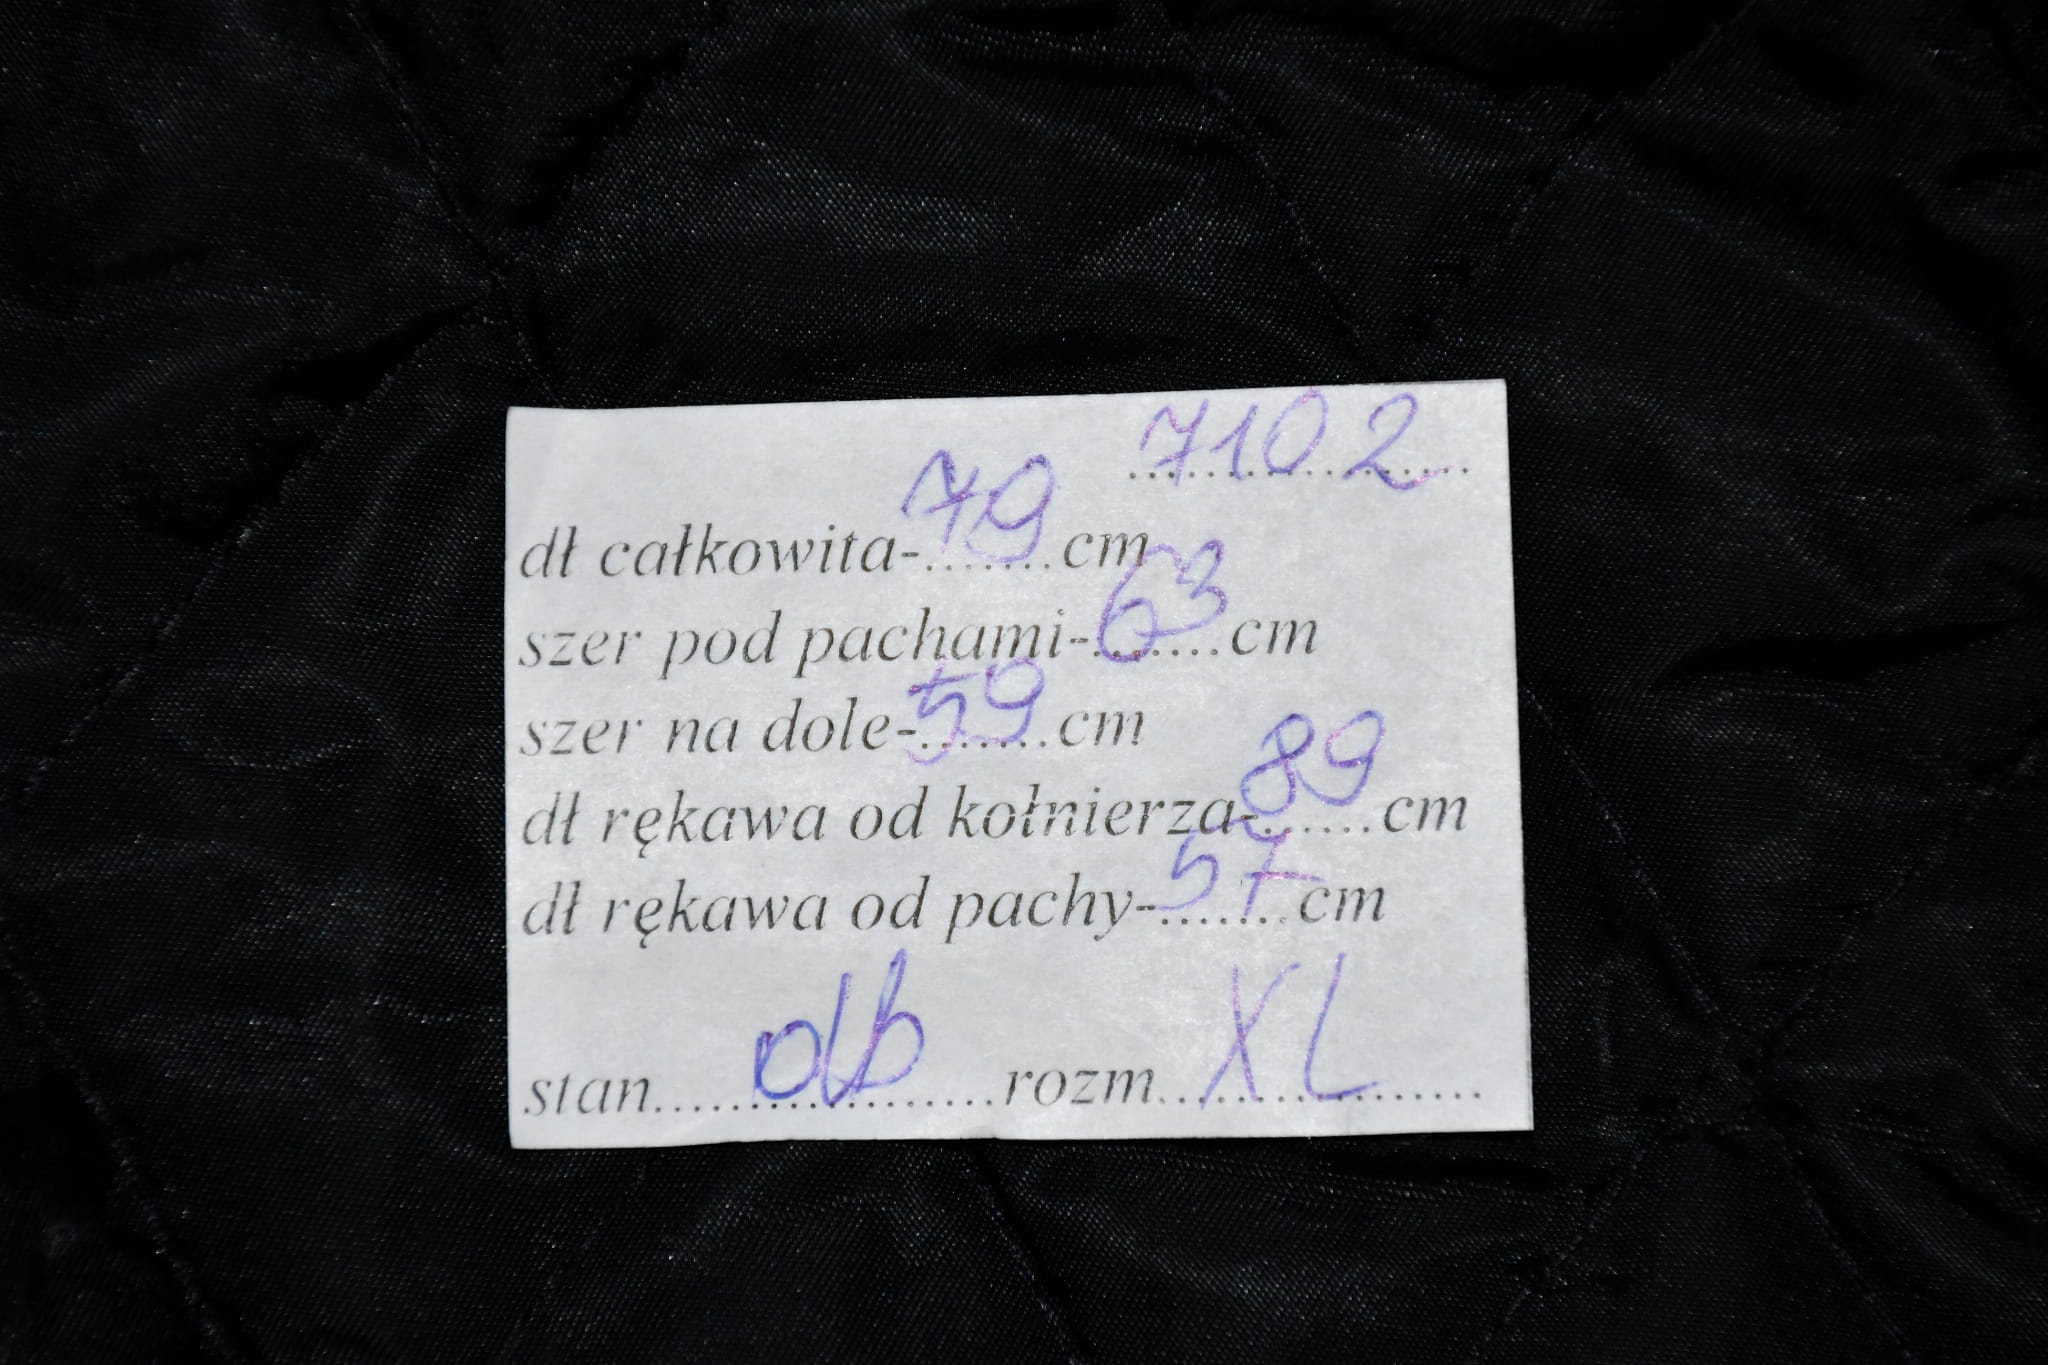 7102
dł całkowita-79cm
szer pod pachami-63cm
szer na dole-59cm
dł rękawa od kołnierza-89cm
dł rękawa od pachy-57cm
stan....db....rozm....XL....